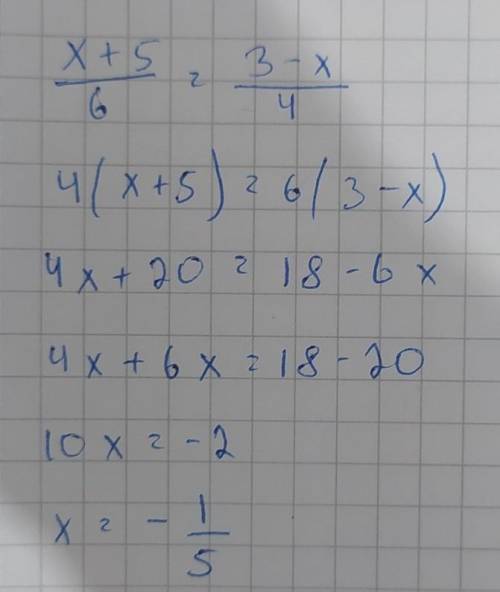 (x + 5)/6 = (3 - x)/4
4(x + 5) = 6(3 - x)
4x + 20 = 18 - 6x
4x + 6x = 18 - 20
10x = -2
x = -1/5